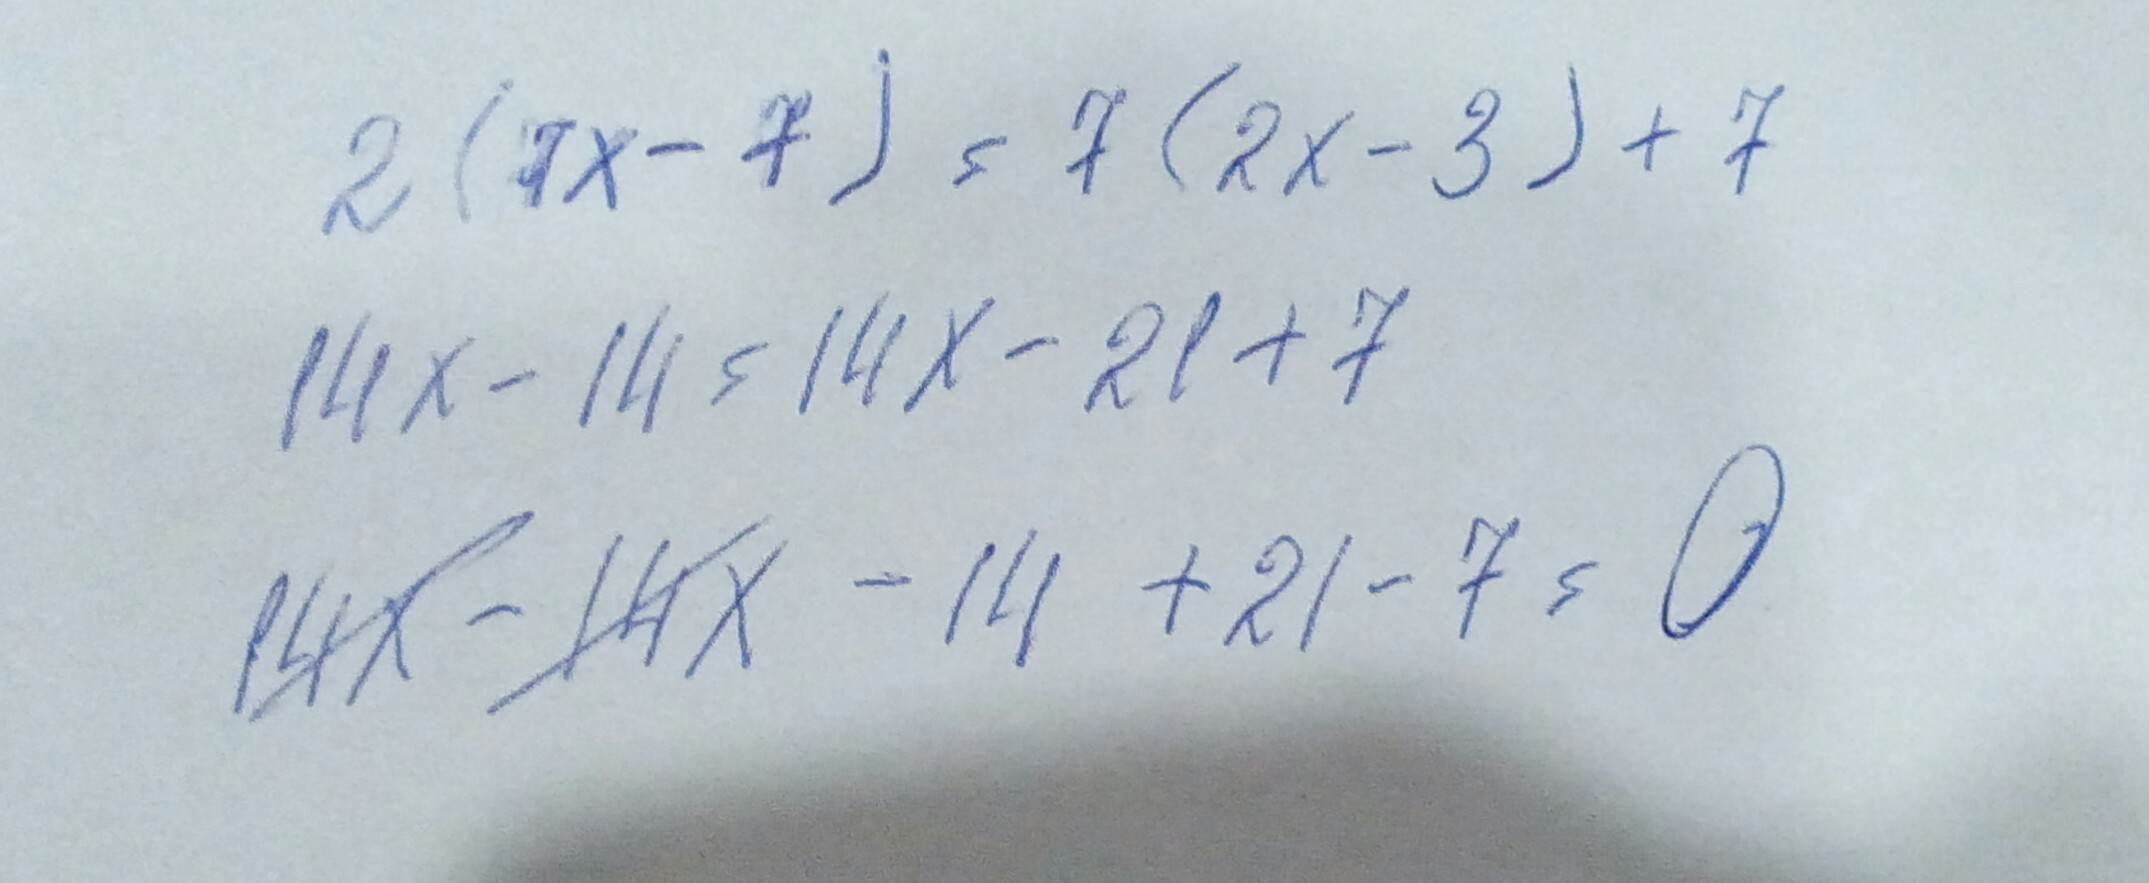 2(7x-7)=7(2x-3)+7
14x-14=14x-21+7
14x-14x-14+21-7=0